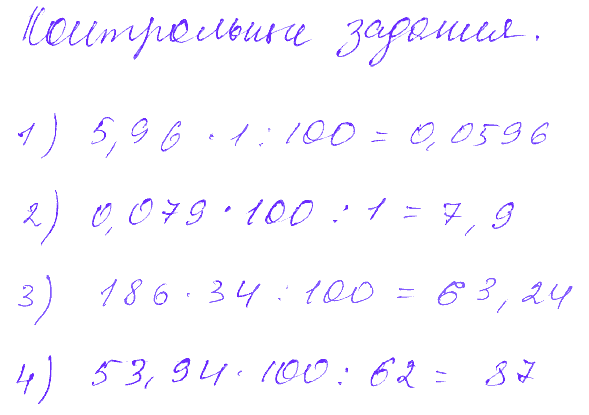 Контрольные задания.
1) 5,96 · 1 : 100 = 0,0596
2) 0,079 · 100 : 1 = 7,9
3) 186 · 34 : 100 = 63,24
4) 53,94 · 100 : 62 = 87